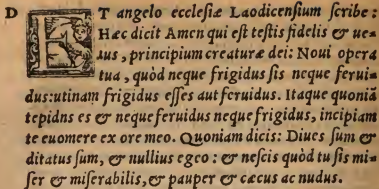 D
ET angelo ecclesiæ Laodicensium scribe:
Hæc dicit Amen qui est testis fidelis & ue=
aus, principium creaturæ dei: Noui opera
tua, quòd neque frigidus sis neque ferui=
dus: utinam frigidus esses aut feruidus. Itaque quoniã
tepidns es & neque feruidus neque frigidus, incipiam
te euomere ex ore meo. Quoniam dicis: Diues sum &
ditatus sum, & nullius egeo: & nescis quòd tu sis mi=
ser & miserabilis, & pauper & cæcus ac nudus.